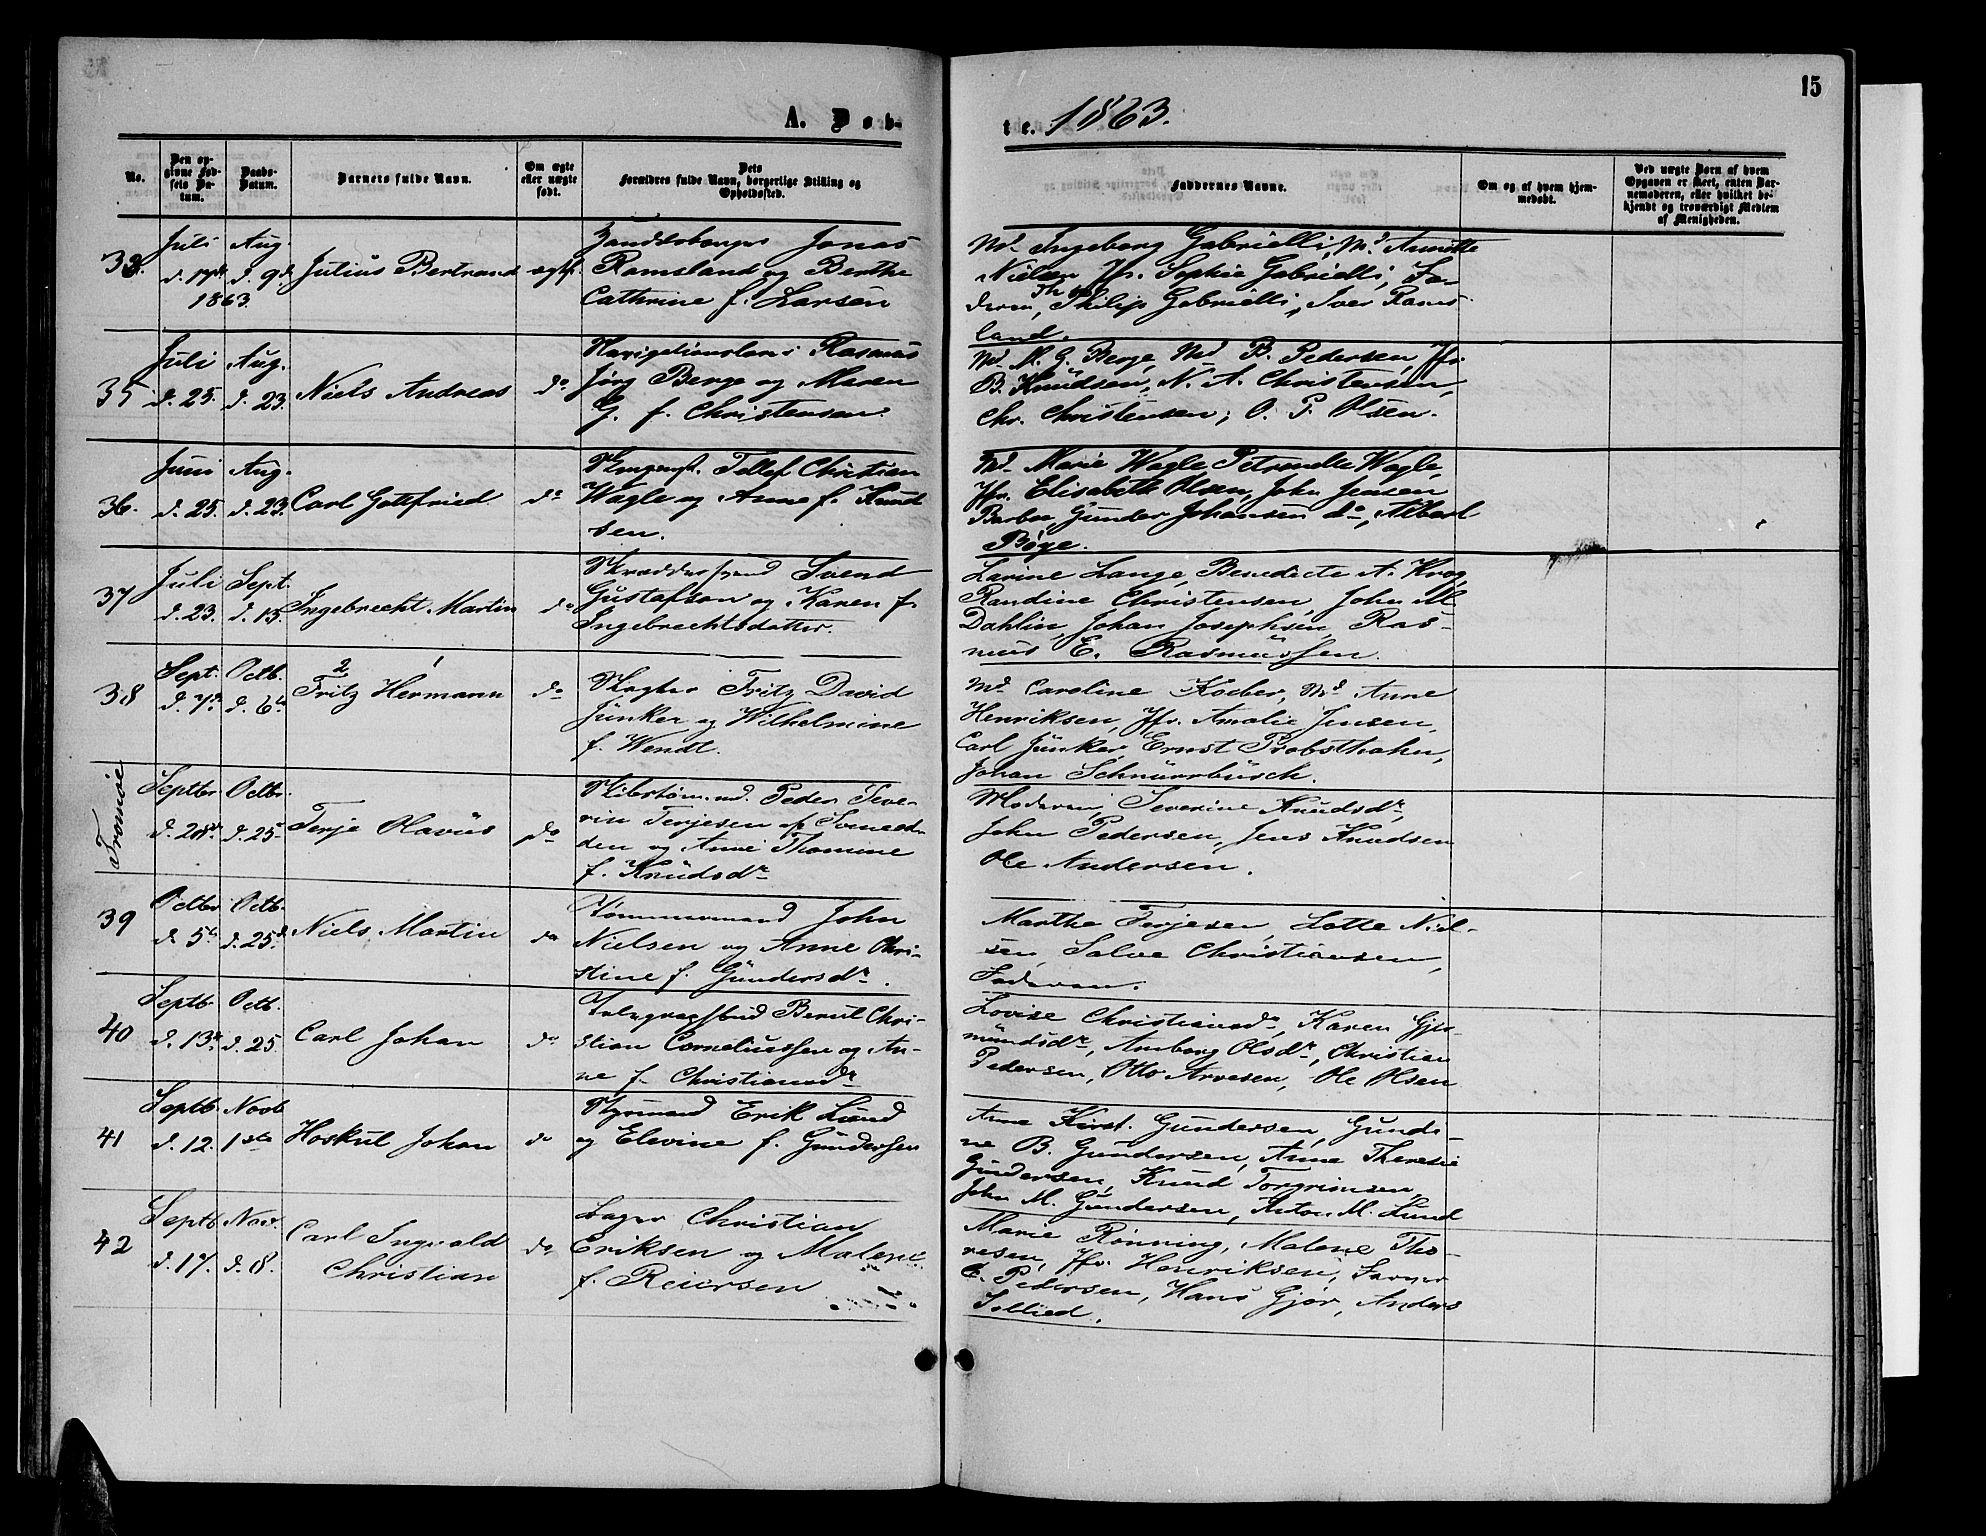 15
A. Døb-
te. 1863.
No.
Den opgivne Fødsels Datum.
Daabs-Datum.
Barnets fulde Navn.
Om ægte eller uægte født.
Dets Forældres fulde Navn, borgerlige Stilling og Opholdssted.
Faddernes Navne.
Om og af hvem hjemmedøbt.
Ved uægte Børn af hvem Opgaven er skeet, enten Barnemoderen, eller hvilket bekjendt og troværdigt Medlem af Menigheden.
Juli d. 17de 1863.
Aug. d. 9d.
Julius Bertrand
ægte
Handelsborger Jonas
Ramsland og Berthe
Cathrine f. Larsen
Md. Ingeborg Gabrielli, Md. Annette
Nielsen Jfr. Sophie Gabrielli, Fa-
deren, Th. Philip Gabrielli, Iver Rams-
land.
35
Juli d. 25.
Aug. d. 23.
Niels Andreas
do
Navigationslærer Rasmus
Jørg Berge og Maren
G. f. Christensen.
Md. M. G. Berge, Md. B. Pedersen, Jfr.
B. Knudsen, N. A. Christensen,
Chr. Christensen, O. P. Olsen.
36.
Juni d. 25.
Aug. d. 23.
Carl Gottfried
do
Tellef Christian
Wagle og Anne f. Knud
sen.
Md. Marie Wagle Petronelle Wagle,
Jfr. Elisabeth Olsen, John Jensen
Barboe Gunder Johansen do, Albert
Bøge.
37
Juli d. 23.
Sept. d. 13.
Ingebrecht Martin
do
Skræddersvend Svend
Gustafson og Karen f.
Ingebrechtsdatter.
Larine Lange, Benedicte A. Krog,
Randine Christensen, John M.
Dahlin, Johan Josephsen, Ras-
mus E. Rasmussen.
38
Sept. d. 7de
Octb. d. 6te
2 1
Fritz Hermann
do
Slagter Fritz David
Junker og Wilhelmine
f. Wendt.
Md. Caroline Koeber, Md. Anne
Henriksen, Jfr. Amalie Jensen,
Carl Junker, Ernst Probsthahn,
Johan Schnurrbusch.
Tromøe
Septbr d. 20de
Octbr. d. 25
Terje Olavus
do
Skibstømmd. Peder Seve-
rin Terjesen af
den og Anne Thomine
f. Knudsdr
Moderen, Severine Knudsdr,
John Pedersen, Jens Knudsen
Ole Andersen.
39
Octbr d. 5te
Octb. d. 25d
Niels Martin
do
Tømmermand John
Nielsen og Anne Chri-
stine f. Gundersdr.
Marthe Terjesen, Lotte Niel-
sen, Salve Christiansen,
Faderen.
40
Septb. d. 13de
Octb. d. 25
Carl Johan
do
Telegraphbud Berul Chri-
stian Corneliussen og An-
ne f. Christiansdr
Lovise Christiansdr, Karen Gjer-
mundsdr, Amborg Olsdr, Christian
Pedersen, Otto Arvesen, Ole Olsen
41
Septb. d. 12.
Novb 1ste
Hoskul Johan
do
Styrmand Erik Lund
og Elevine f. Gundersen
Anne Kirst. Gundersen, Gundi-
ne B. Gundersen, Anne Theresie
Gundersen, Knud Torgrimsen,
John M. Gundersen, Anton M. Lund
42
Septb. d. 17.
Nov. d. 8.
Carl Ingvald
Christian
do
Bager Christian
Eriksen og Malene
f. Reiersen
Marie Rønning, Malene Tho-
resen, Jfr. Henriksen, Farver
C. Pedersen, Hans Gjør, Anders
Sollied.